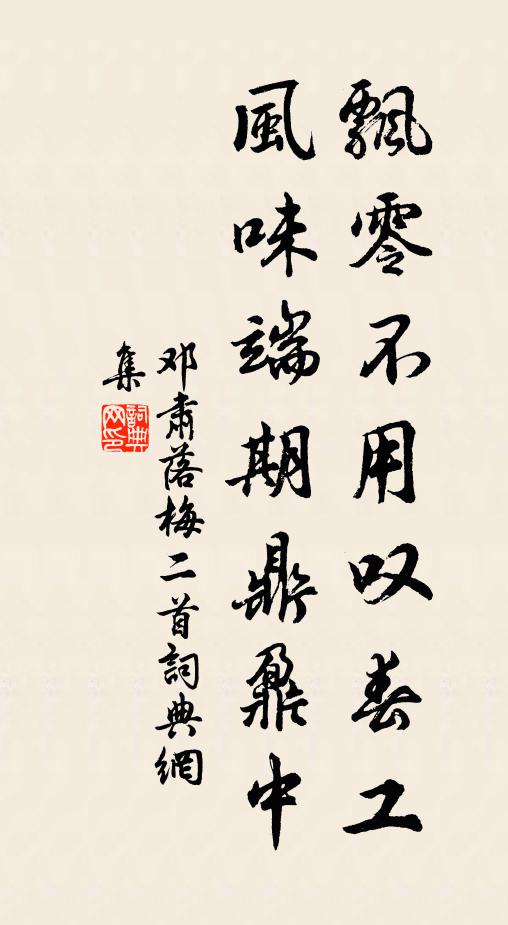 飄零不用叹春工
風味端期鼎鼐中
邓肅落梅二首詞典網
集
詞典网印